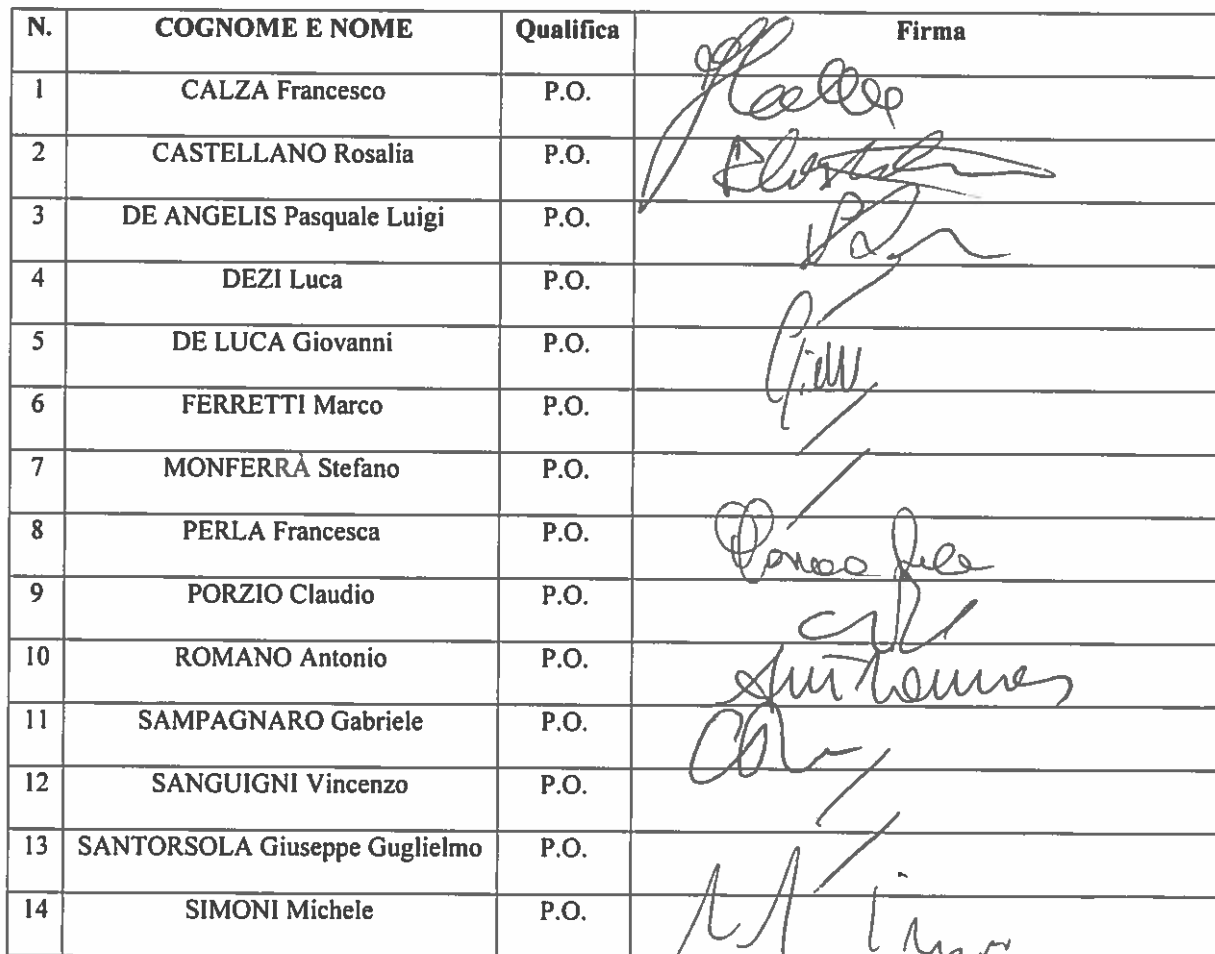 N. COGNOME E NOME Qualifica Firma
1 CALZA Francesco P.O.
2 CASTELLANO Rosalia P.O.
3 DE ANGELIS Pasquale Luigi P.O.
4 DEZI Luca P.O.
5 DE LUCA Giovanni P.O.
6 FERRETTI Marco P.O.
7 MONFERRÀ Stefano P.O.
8 PERLA Francesca P.O.
9 PORZIO Claudio P.O.
10 ROMANO Antonio P.O.
11 SAMPAGNARO Gabriele P.O.
12 SANGUIGNI Vincenzo P.O.
13 SANTORSOLA Giuseppe Guglielmo P.O.
14 SIMONI Michele P.O.